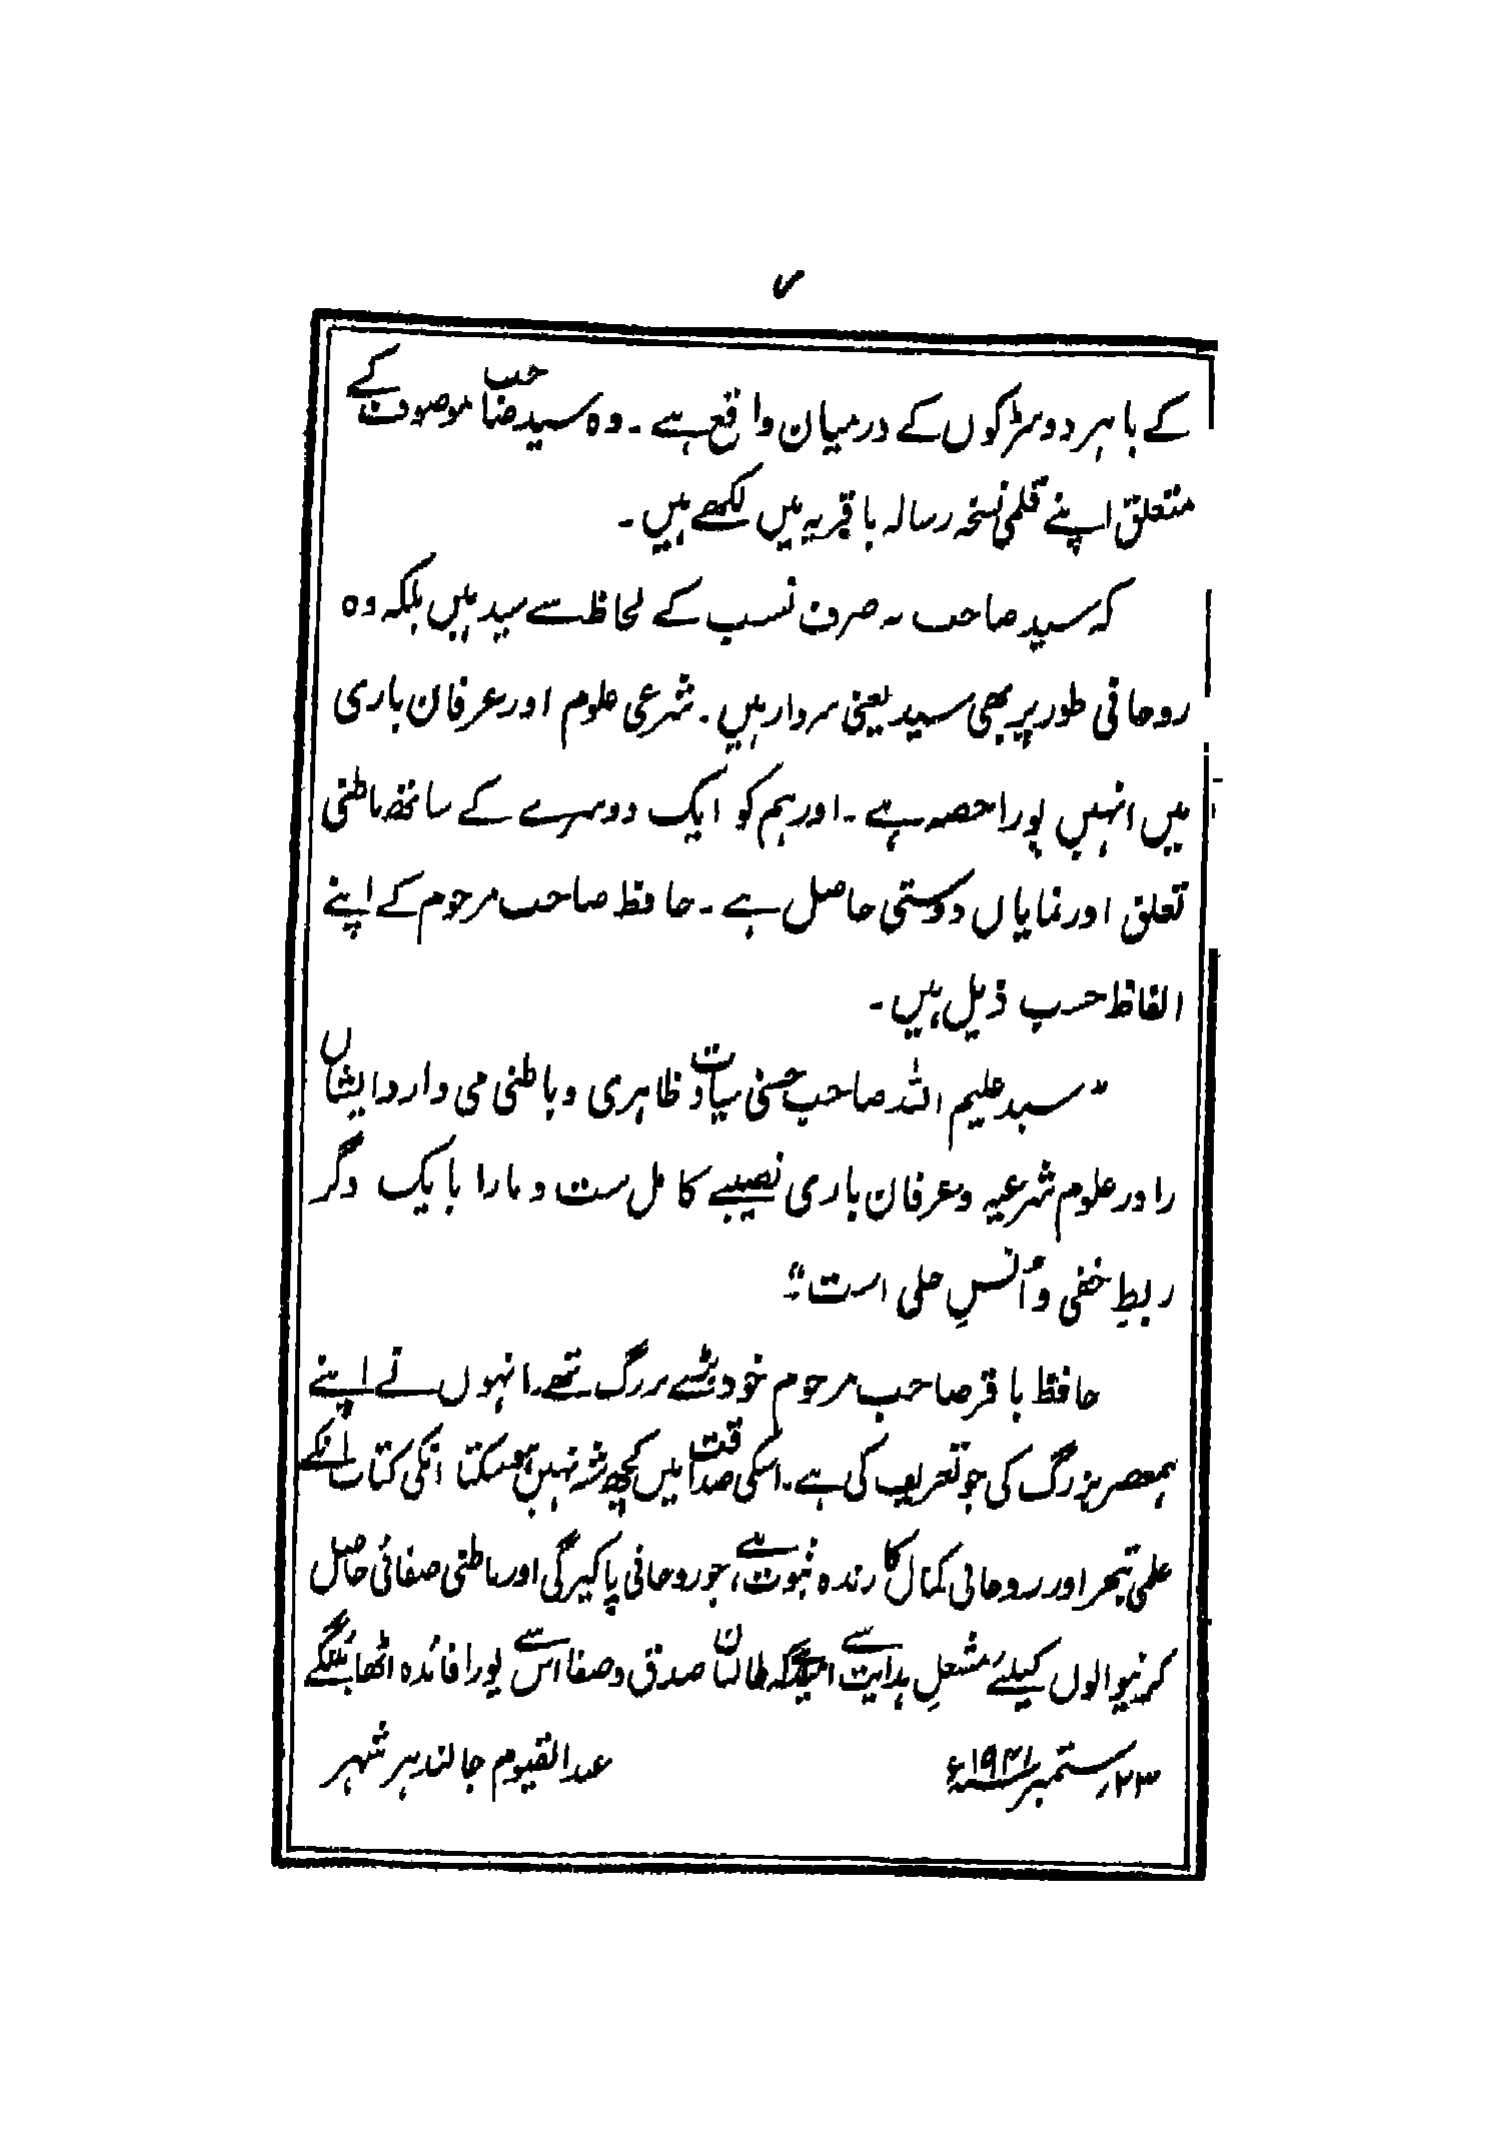 ۷
کے باہر دو سڑکوں کے درمیان واقع ہے ۔ وہ سید صاحب موصوف کے
متعلق اپنے قلمی نسخہ رسالہ باقریہ میں لکھے ہیں ۔
کہ سید صاحب نہ صرف نسب کے لحاظ سے سید ہیں بلکہ وہ
روحانی طور پر بھی سید یعنی سردار ہیں ۔ شرعی علوم اور عرفان باری
میں انہیں پورا حصہ ہے ۔ اور ہم کو ایک دوسرے کے ساتھ باطنی
تعلق اور نمایاں دوستی حاصل ہے ۔ حافظ صاحب مرحوم کے اپنے
الفاظ حسب ذیل ہیں ۔
" سید علیم اللہ صاحب حسنی سیادت ظاہری و باطنی می دارد ایشاں
را در علوم شرعیہ و عرفان باری نصیبے کامل ست و مارا با یک دگر
ربطِ خفی و اُنسِ جلی است "
حافظ باقر صاحب مرحوم خود بڑے بزرگ تھے ۔ انہوں نے اپنے
ہمعصر بزرگ کی جو تعریف کی ہے ۔ اسکی صداقت میں کچھ شبہ نہیں ہو سکتا انکی کتاب انکے
علمی تبحر اور روحانی کمال کا زندہ ثبوت ہے ، جو روحانی پاکیزگی اور باطنی صفائی حاصل
کرنیوالوں کیلئے مشعلِ ہدایت ہے امید ہے کہ طالبان صدق و صفا اس سے پورا فائدہ اٹھائینگے
۲۳؍ ستمبر ۱۹۴۱ء عبدالقیوم جالندہر شہر